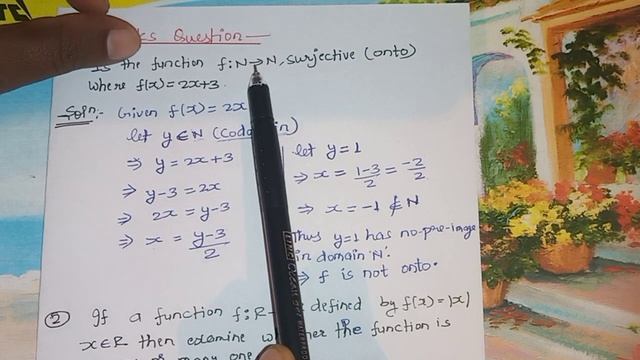 Question
Is the function f:N→N, surjective (onto)
where f(x)=2x+3.
Soln:- Given f(x)=2x
let y∈N (Codomain)
⇒ y=2x+3
⇒ y-3=2x
⇒ 2x=y-3
⇒ x = y-3/2
let y=1
⇒ x = 1-3/2 = -2/2
⇒ x=-1 ∉ N
Thus y=1 has no-pre-image
in domain 'N'.
⇒ f is not onto.
② If a function f:R defined by f(x)=|x|
x∈R then examine whether the function is
many one